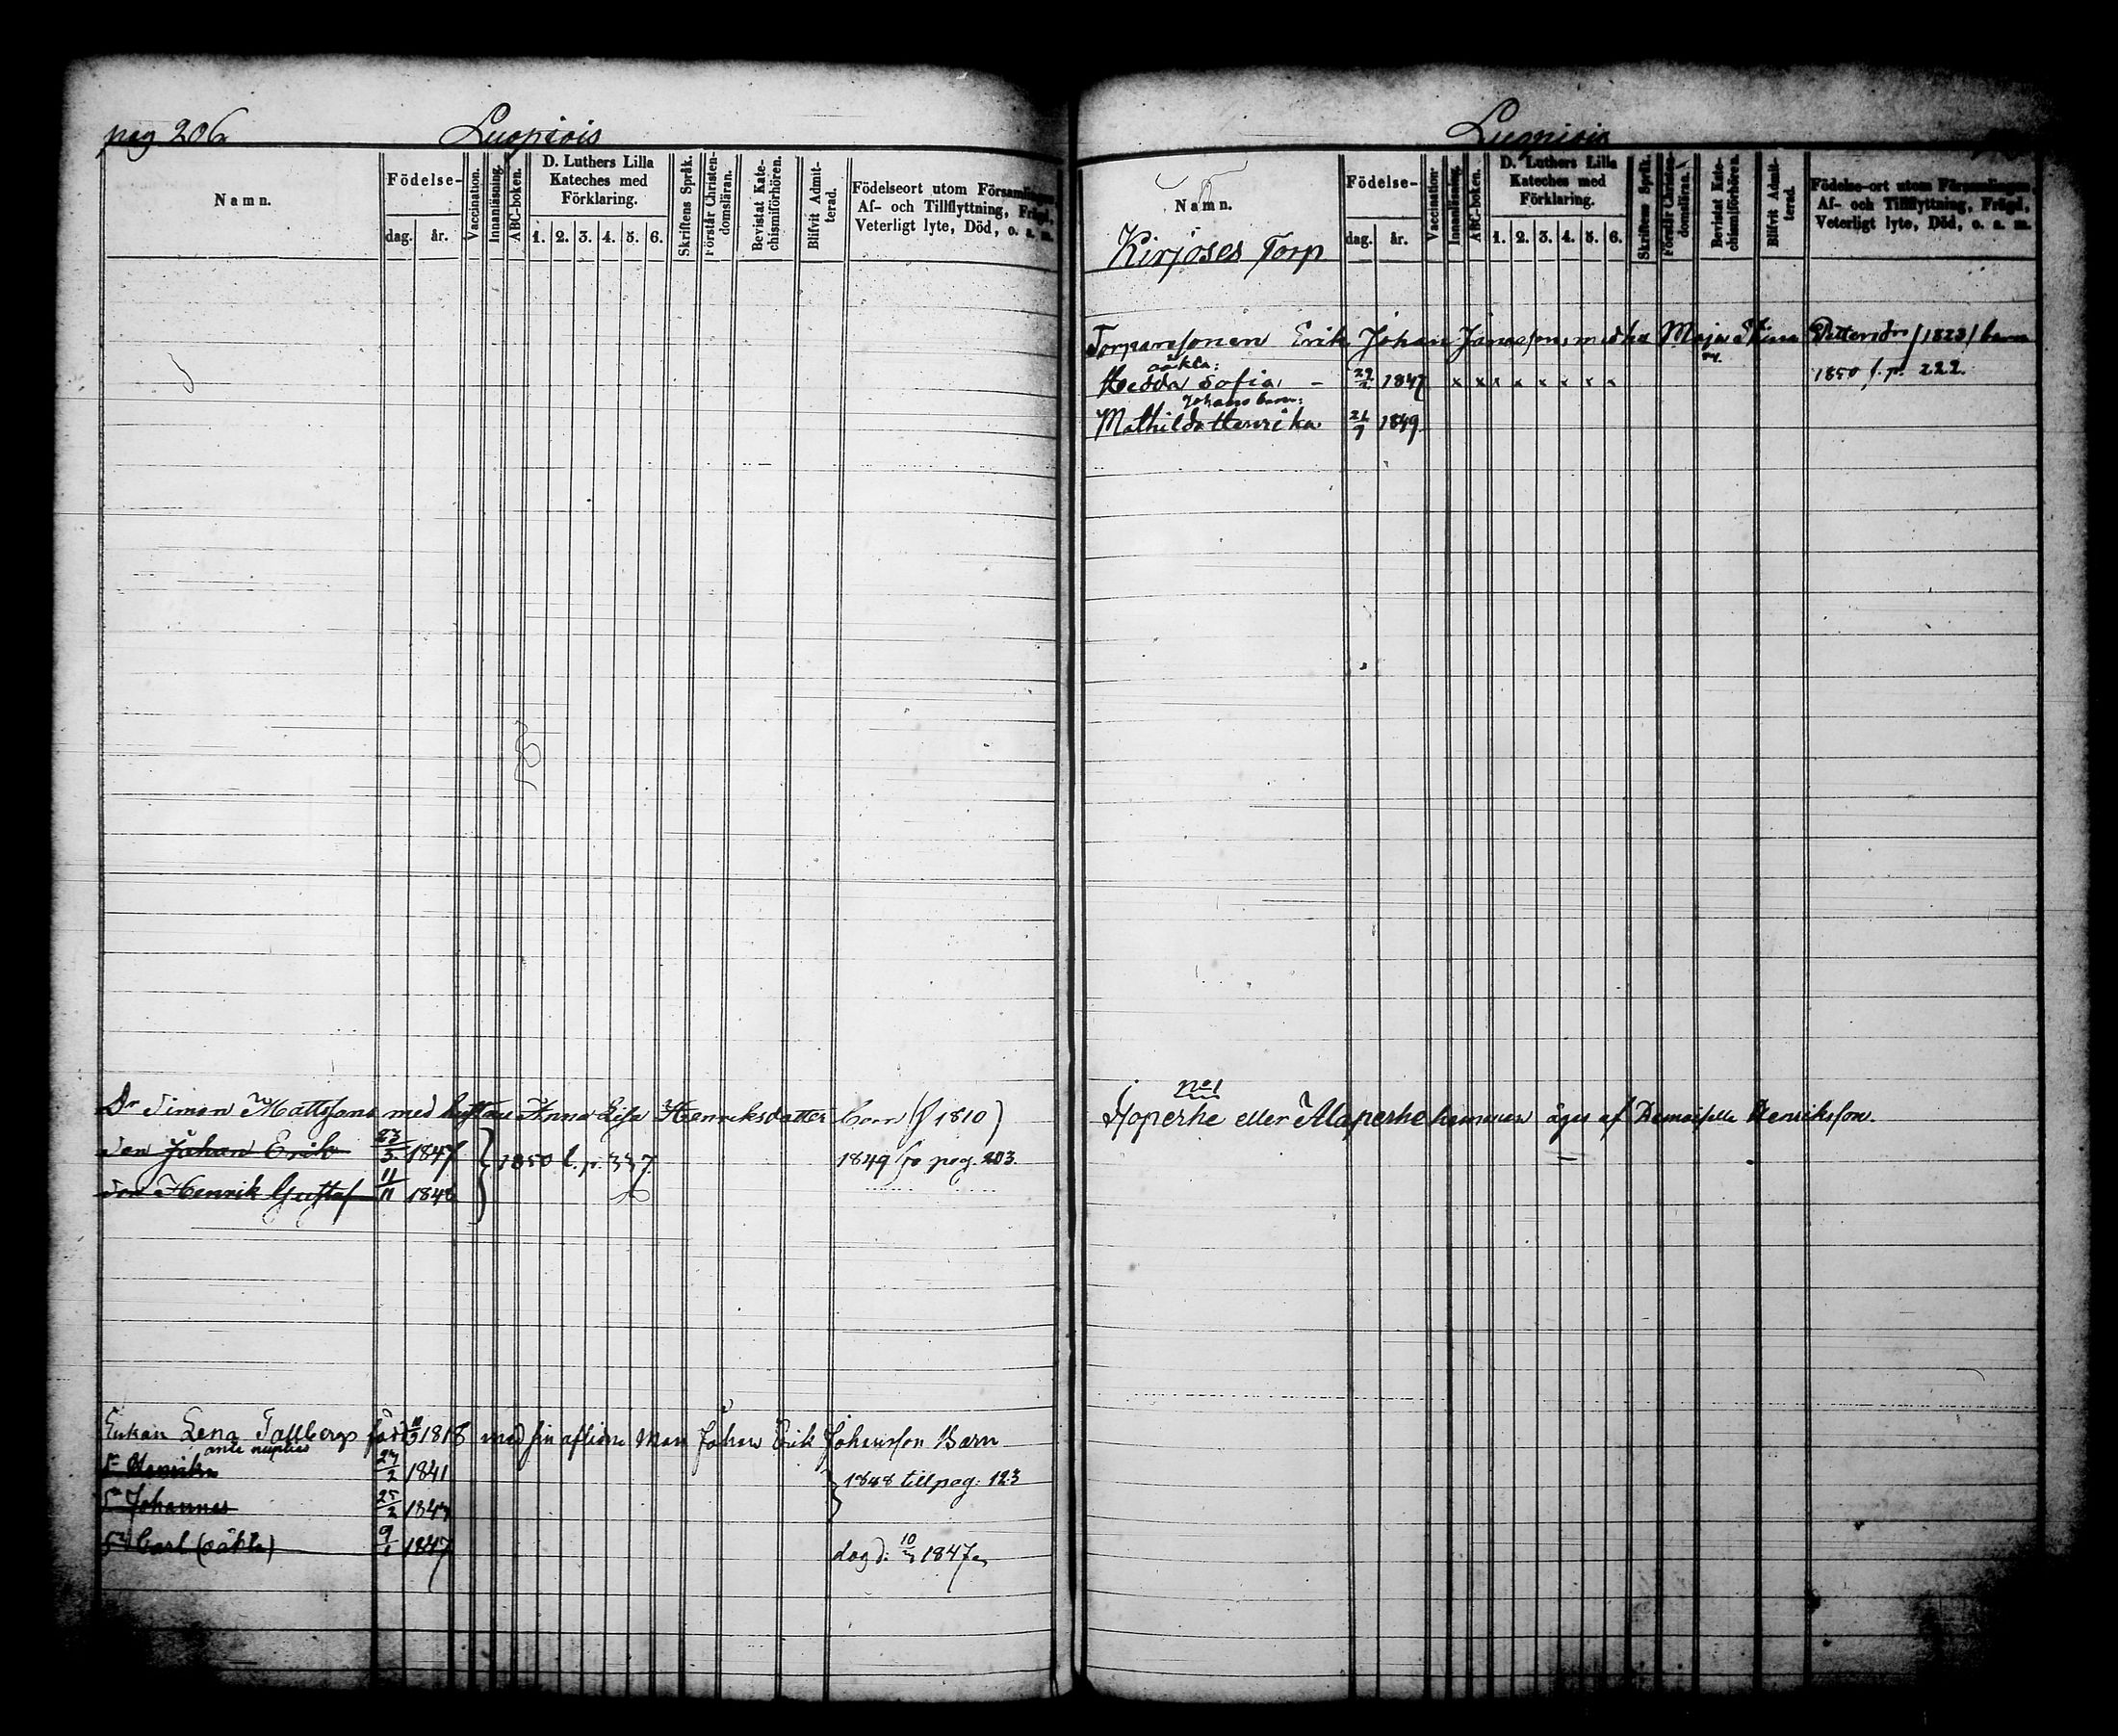 pag 206.
Luopiois
Namn.
Födelse-
dag. år.
Vaccination.
Innanläsning.
ABC-boken.
D. Luthers Lilla
Kateches med
Förklaring.
1. 2. 3. 4. 5. 6.
Skriftens Språk.
Förstår Christen-
domsläran.
Bevistat Kate-
chismiförhören.
Blifvit Admit-
terad.
Födelseort utom Församlingen,
Af- och Tillflyttning, Frägd,
Veterligt lyte, Död, o. s. m.
Dr Simon Mattssons med hustrun Anna Lisa Henriksdotter barn (f 1810)
Son Johan Erik 23/3 1847 } 1850 l. p. 337 1849 fr pag. 203.
Son Henrik Gustaf 11/11 1848
Enkan Lena Tallbergs född 1818 med sin aflidne Man Johan Erik Johansson Barn
ante nuptias
Sr Henrik 27/2 1841 } 1848 till pag. 123
Sn Johannes 25/2 1844
Sn Carl (oäkta) 9/1 1847 dog d. 10/3 1847
Luopiois
Namn.
Kirjoses Torp
Födelse-
dag. år.
Vaccination
Innanläsning.
ABC-boken.
D. Luthers Lilla
Kateches med
Förklaring.
1. 2. 3. 4. 5. 6.
Skriftens Språk.
Förstår Christen-
domsläran.
Bevistat Kate-
chismiförhören.
Blifvit Admit-
terad.
Födelse-ort utom Församlingen,
Af- och Tillflyttning, Frägd,
Veterligt lyte, Död, o. s. m.
Torparesonen Erik Johan Janssons med h:a Maja Stina Pettersdr (1823) barn
oäkta:
Hedda Sofia - 29/2 1847 x x x x x x x x 1850 f. p. 222.
Johans barn:
Mathilda Henrika 21/7 1849
No 1
Isoperhe eller Alaperhe hemman äges af Demoiselle Henriksson.